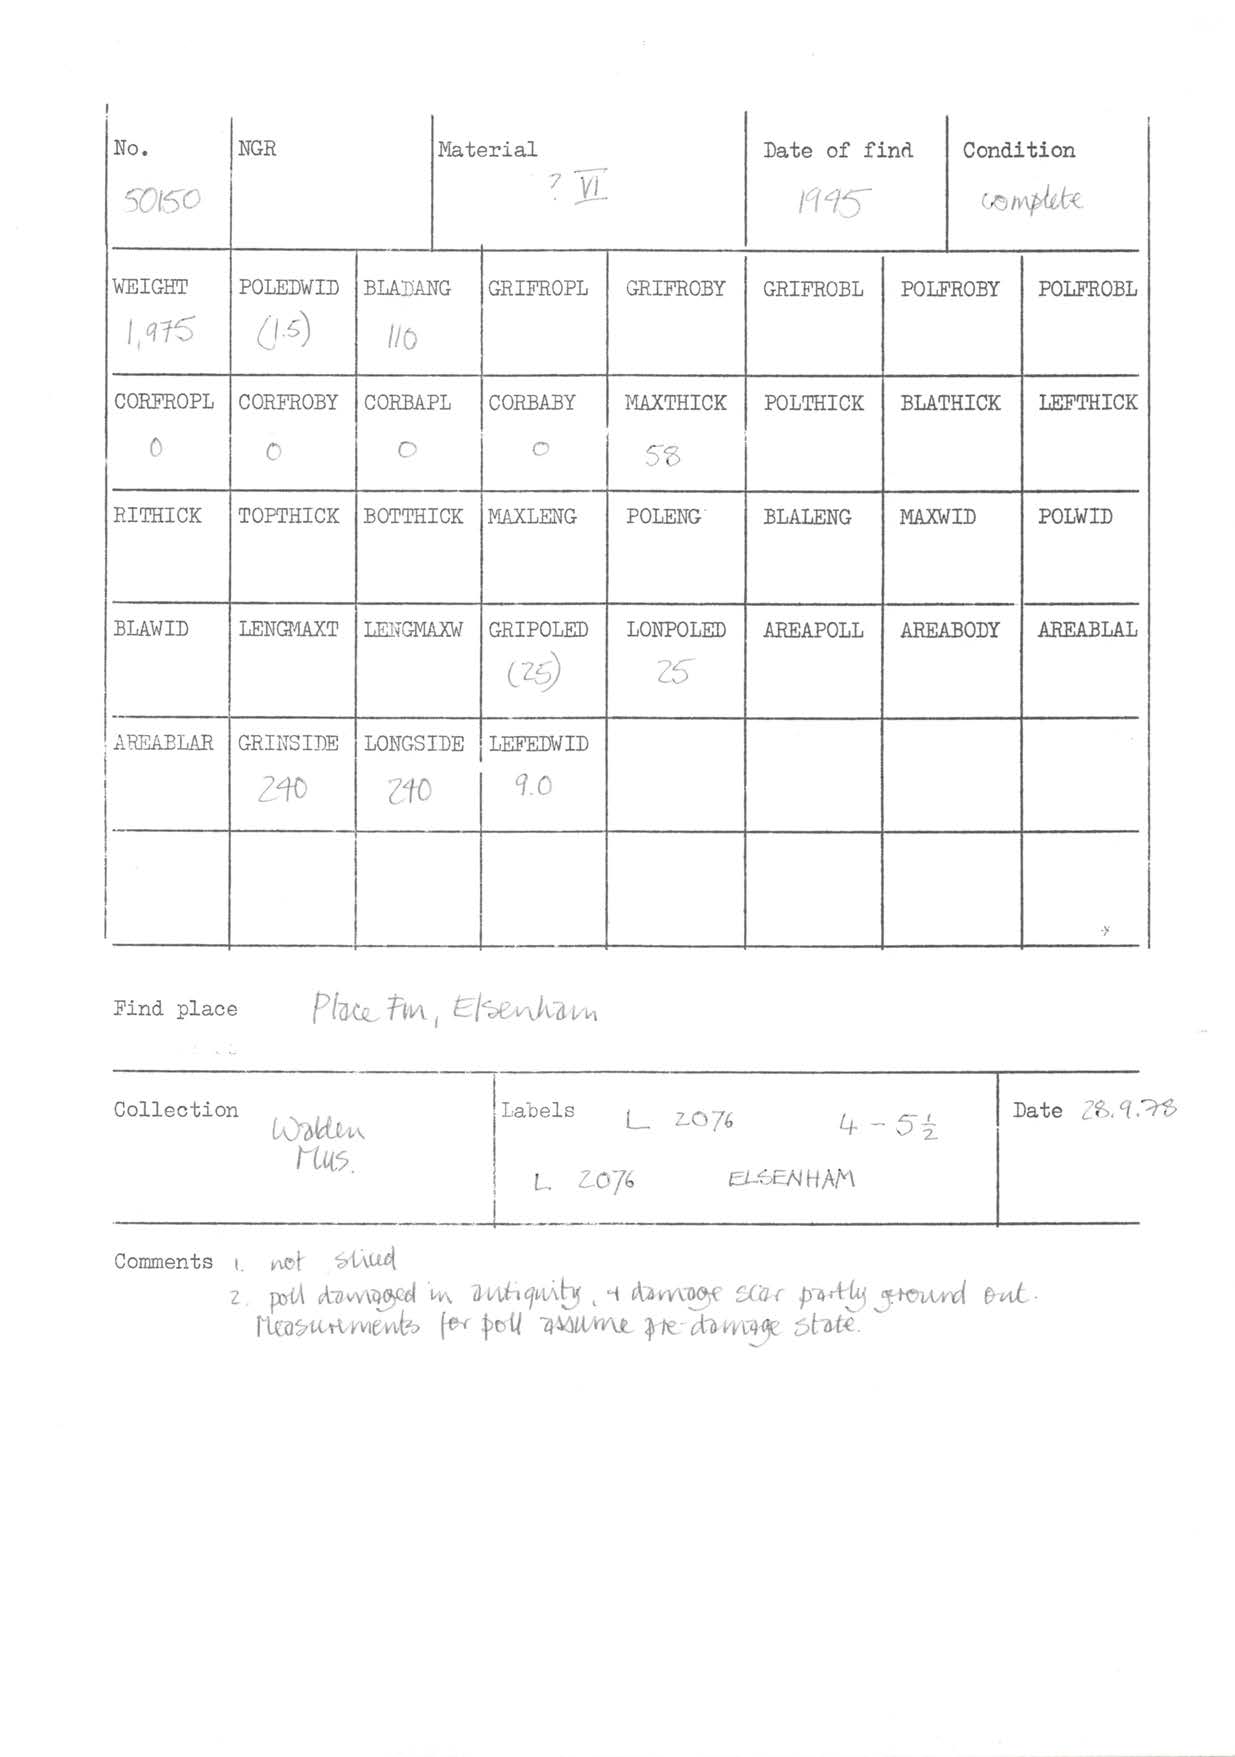 No. NGR Material Date of find Condition
50150 ? VI 1945 complete
WEIGHT POLEDWID BLADANG GRIFROPL GRIFROBY GRIFROBL POLFROBY POLFROBL
1,975 (1.5) 110
CORFROPL CORFROBY CORBAPL CORBABY MAXTHICK POLTHICK BLATHICK LEFTHICK
0 0 0 0 58
RITHICK TOPTHICK BOTTHICK MAXLENG POLENG BLALENG MAXWID POLWID
BLAWID LENGMAXT LENGMAXW GRIPOLED LONPOLED AREAPOLL AREABODY AREABLAL
(25) 25
AREABLAR GRINSIDE LONGSIDE LEFEDWID
240 240 9.0
Find place Place Fm, Elsenham
Collection Walden Mus.
Labels L 2076 4 - 5½
L 2076 ELSENHAM
Date 28.9.78
Comments 1. not sliced
2. poll damaged in antiquity, + damage scar partly ground out.
Measurements for poll assume pre-damage state.